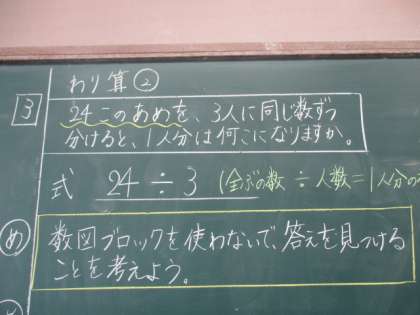 わり算②
3 24このあめを、3人に同じ数ずつ
分けると、1人分は何こになりますか。
式 24÷3 (全ぶの数÷人数=1人分の
め 数図ブロックを使わないで、答えを見つける
ことを考えよう。